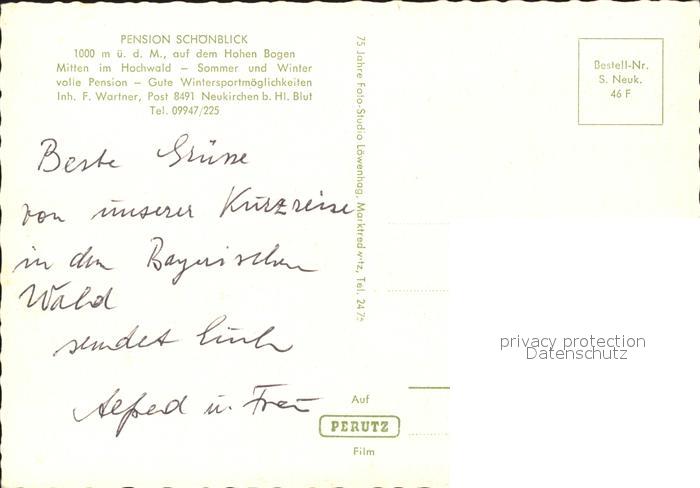 PENSION SCHÖNBLICK
1000 m ü. d. M., auf dem Hohen Bogen
Mitten im Hochwald – Sommer und Winter
volle Pension – Gute Wintersportmöglichkeiten
Inh. F. Wartner, Post 8491 Neukirchen b. Hl. Blut
Tel. 09947/225
Beste Grüsse
von unserer Kurzreise
in den Bayerischen
Wald
sendet Euch
Alfred u. Frau
75 Jahre Foto-Studio Löwenhag, Marktredwitz, Tel. 24 75
Bestell-Nr.
S. Neuk.
46 F
Auf
PERUTZ
Film
privacy protection
Datenschutz